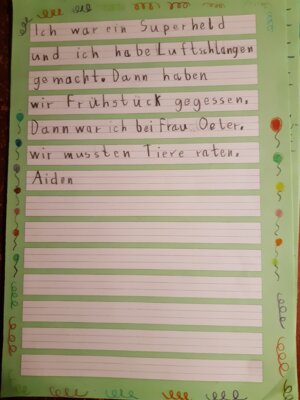 Ich war ein Superheld
und ich habe Luftschlangen
gemacht. Dann haben
wir Frühstück gegessen.
Dann war ich bei Frau Oeter.
wir mussten Tiere raten.
Aiden